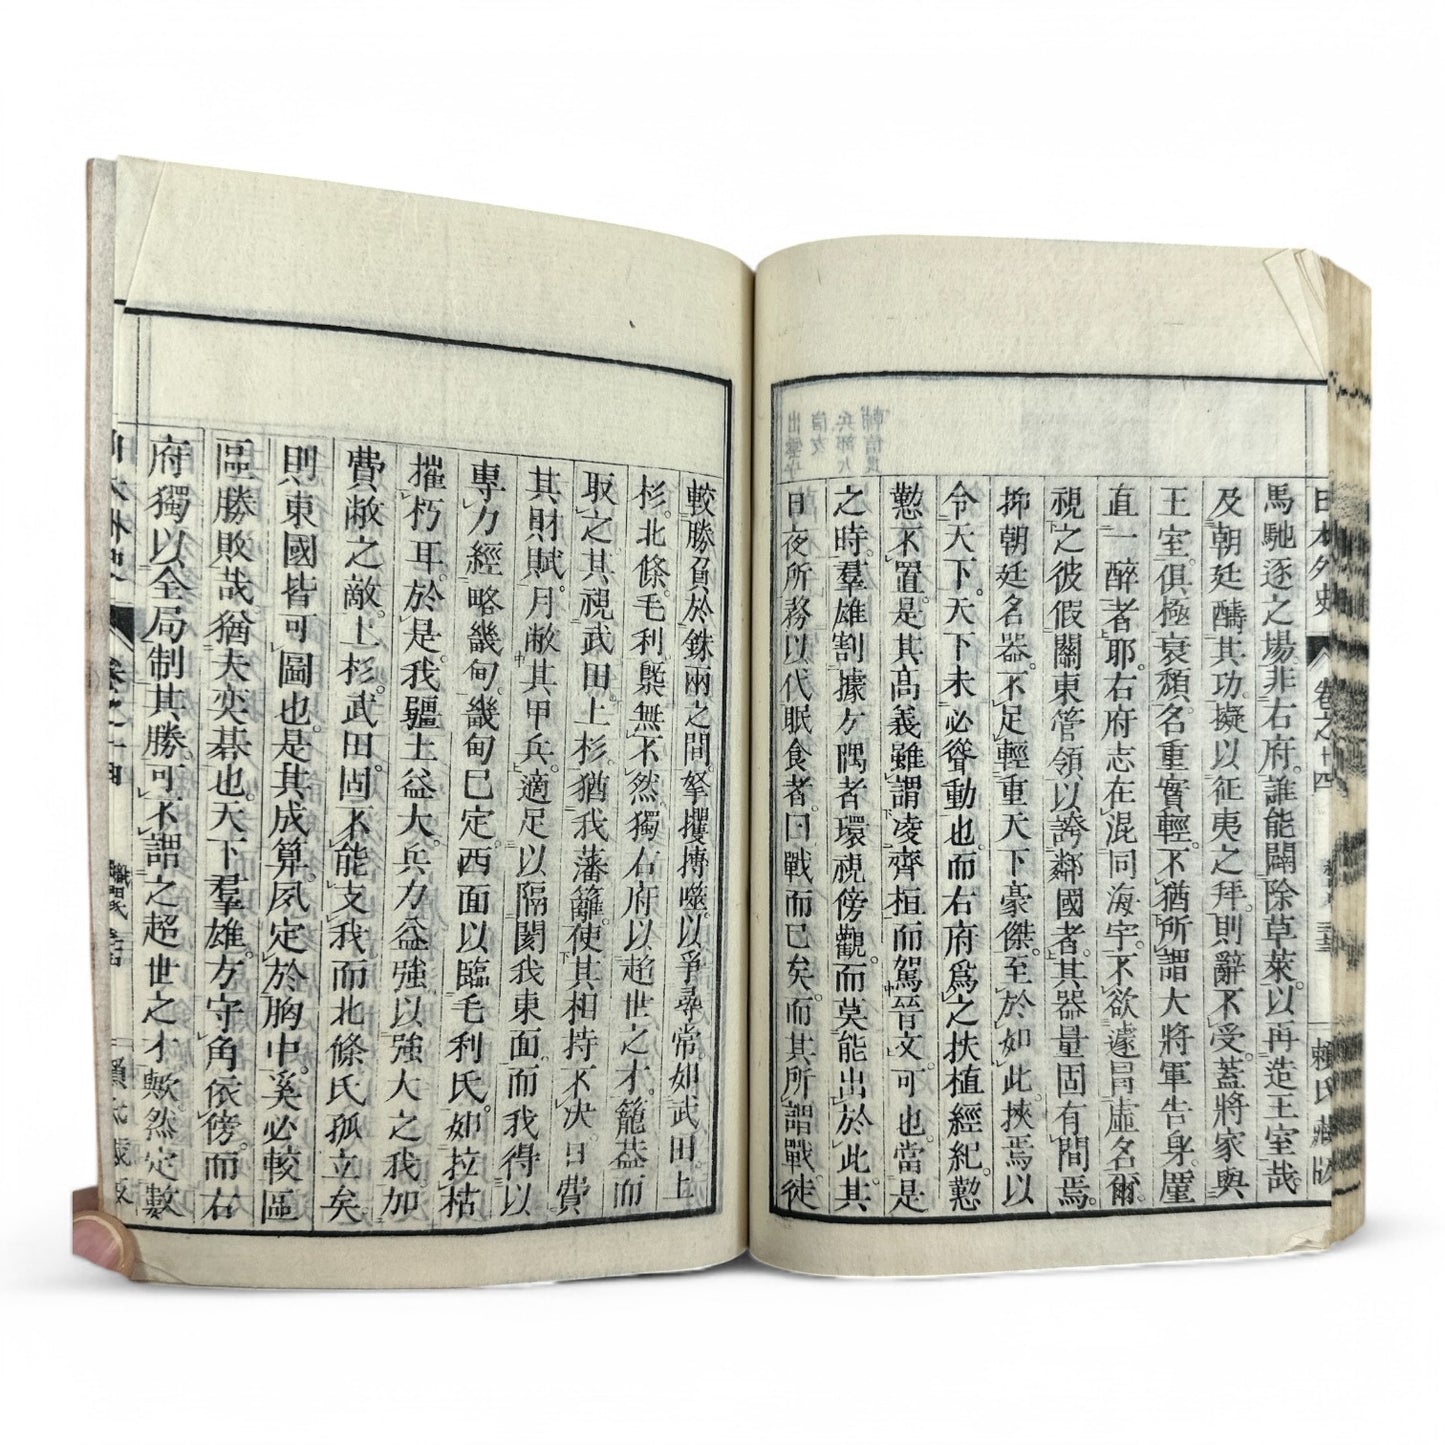 日本外史 卷之十四 賴氏藏版
馬馳逐之場非右府誰能闢除草萊以再造王室哉
及朝廷醻其功擬以征夷之拜則辭不受蓋將家與
王室俱極衰頹名重實輕不猶所謂大將軍告身厪
直一醉者耶右府志在混同海宇不欲遽冐虛名爾
視之彼假關東管領以誇鄰國者其器量固有間焉
抑朝廷名器不足輕重天下豪傑至於如此挾焉以
令天下天下未必聳動也而右府爲之扶植經紀懃
懃不置是其高義雖謂凌齊桓而駕晉文可也當是
之時羣雄割據方隅者環視傍觀而莫能出於此其
日夜所務以代眠食者曰戰而已矣而其所謂戰徒
較勝負於銖兩之間拏攫搏噬以爭尋常如武田上
杉北條毛利槩無不然獨右府以超世之才籠葢而
取之其視武田上杉猶我藩籬使其相持不決日費
其財賦月敝其甲兵適足以隔閡我東面而我得以
專力經略畿甸畿甸已定西面以臨毛利氏如拉枯
摧朽耳於是我疆土益大兵力益強以強大之我加
費敝之敵上杉武田固不能支我而北條氏孤立矣
則東國皆可圖也是其成算夙定於胸中奚必較區
區勝敗哉猶夫奕碁也天下羣雄方守角依傍而右
府獨以全局制其勝可不謂之超世之才歟然定數